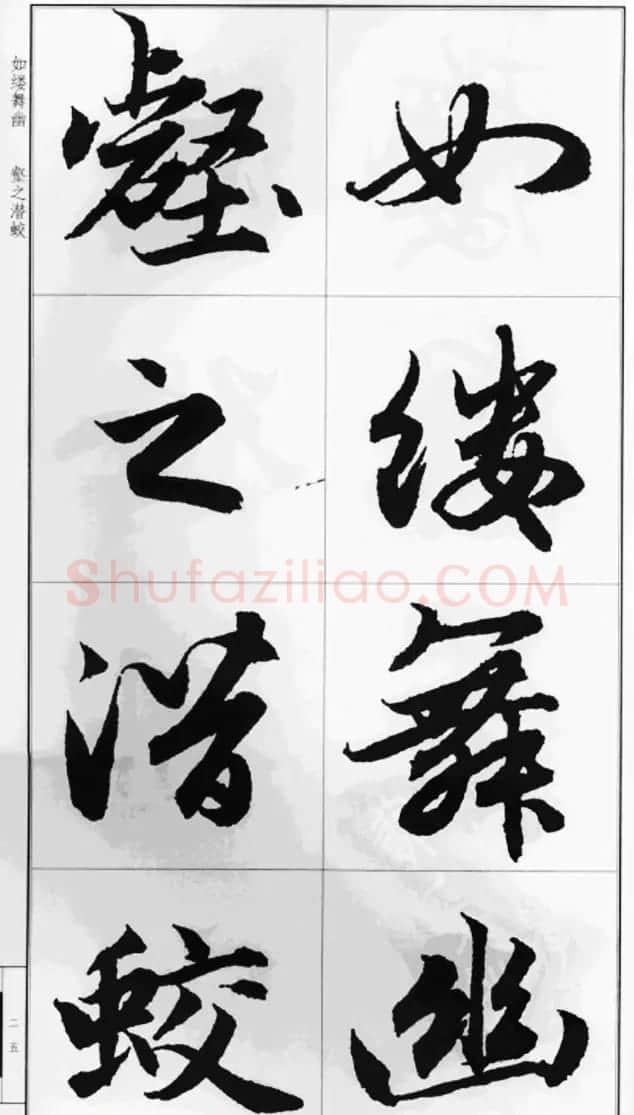 如缕舞幽
壑之潜蛟
如缕舞幽 壑之潜蛟
二五
Shufaziliao.COM